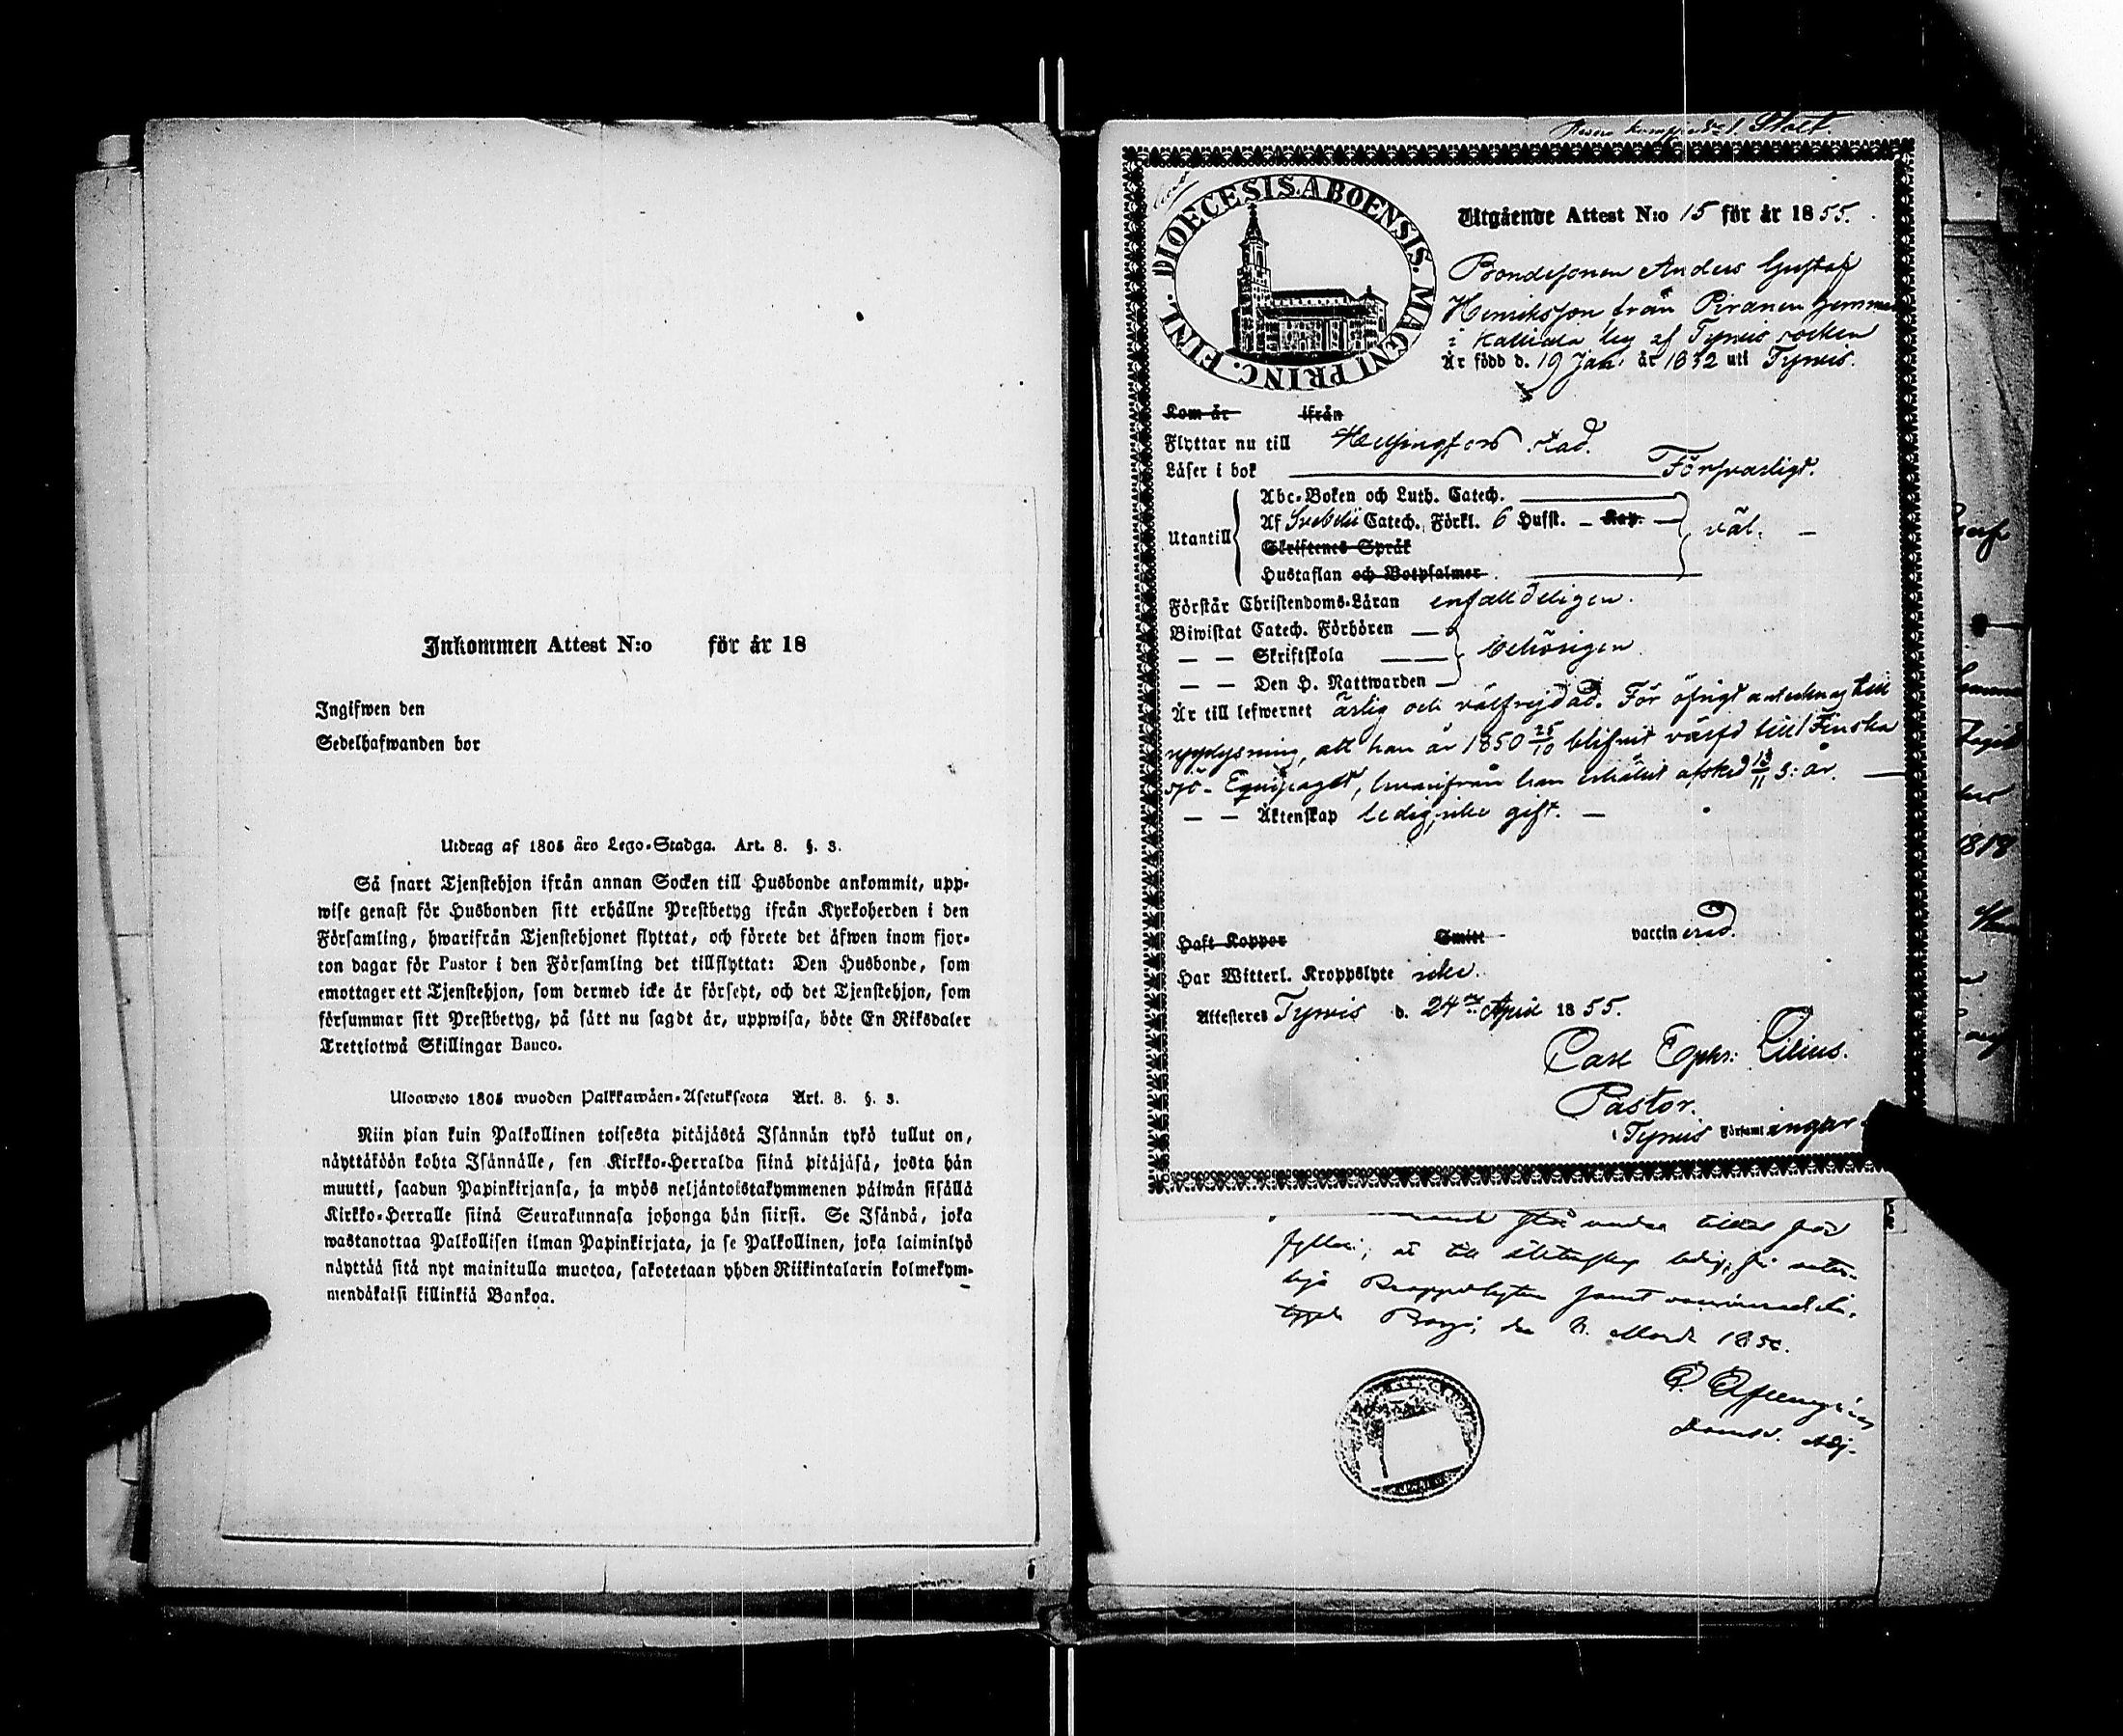 Inkommen Attest N:o för år 18
Ingifwen den
Sedelhafwanden bor
Utdrag af 1805 års Lego-Stadga. Art. 8. §. 3.
Så snart Tjenstehjon ifrån annan Socken till Husbonde ankommit, upp-
wise genast för Husbonden sitt erhållne Prestbetyg ifrån Kyrkoherden i den
Församling, hwarifrån Tjenstehjonet flyttat, och förete det äfwen inom fjor-
ton dagar för Pastor i den Församling det tillflyttat: Den Husbonde, som
emottager ett Tjenstehjon, som dermed icke är försedt, och det Tjenstehjon, som
försummar sitt Prestbetyg, på sätt nu sagdt är, uppwisa, böte En Riksdaler
Trettiotwå Skillingar Banco.
Ulosweto 1805 wuoden Palkkawäen-Asetuksesta Art. 8. §. 3.
Niin pian kuin Palkollinen toisesta pitäjästä Isännän tykö tullut on,
näyttäköön kohta Isännälle, sen Kirkko-Herralda siinä pitäjäsä, josta hän
muutti, saadun Papinkirjansa, ja myös neljäntoistakymmenen päiwän sisällä
Kirkko-Herralle siinä Seurakunnasa johonga hän siirsi. Se Isändä, joka
wastanottaa Palkollisen ilman Papinkirjata, ja se Palkollinen, joka laiminlyö
näyttää sitä nyt mainitulla muotoa, sakotetaan yhden Riikintalarin kolmekym-
mendäkaksi killinkiä Bankoa.
Stolt
DIOECESIS. ABOENSIS. MAGNI PRINC. FINL.
Utgående Attest N:o 15 för år 1855.
Bondesonen Anders Gustaf
Henriksson från Piranen hemman
i Kalliala by af Tyrvis socken
Är född d. 19 Jan: år 1832 uti Tyrvis.
Kom år ifrån
Flyttar nu till Helsingfors stad.
Läser i bok Försvarligt.
Abc-Boken och Luth. Catech.
Utantill Af Svebelii Catech. Förkl. 6 Hufst. - Kap. väl. -
Skriftenes Språk
Hustaflan och Botpsalmer
Förstår Christendoms-Läran enfalldeligen.
Biwistat Catech. Förhören
— — Skriftskola behörigen
— — Den H. Nattwarden
Är till lefwernet ärlig och välfrejdad. För öfrigt antecknas till
upplysning, att han år 1850 25/10 blifvit värfd till 1 Finska
sjö-Equipaget, hvarifrån han erhållit afsked 13/11 s: år.
— — Äktenskap ledig, icke gift. —
Haft Koppor Smitt vaccinerad.
Har Witterl. Kroppslyte icke.
Attesteres Tyrvis d. 24 April 1855.
Carl Ephr: Lilius.
Pastor.
i Tyrvis Församlingar
till
Kroppslyten samt vaccinerad
Borgå, den Mars
Adj.
1818